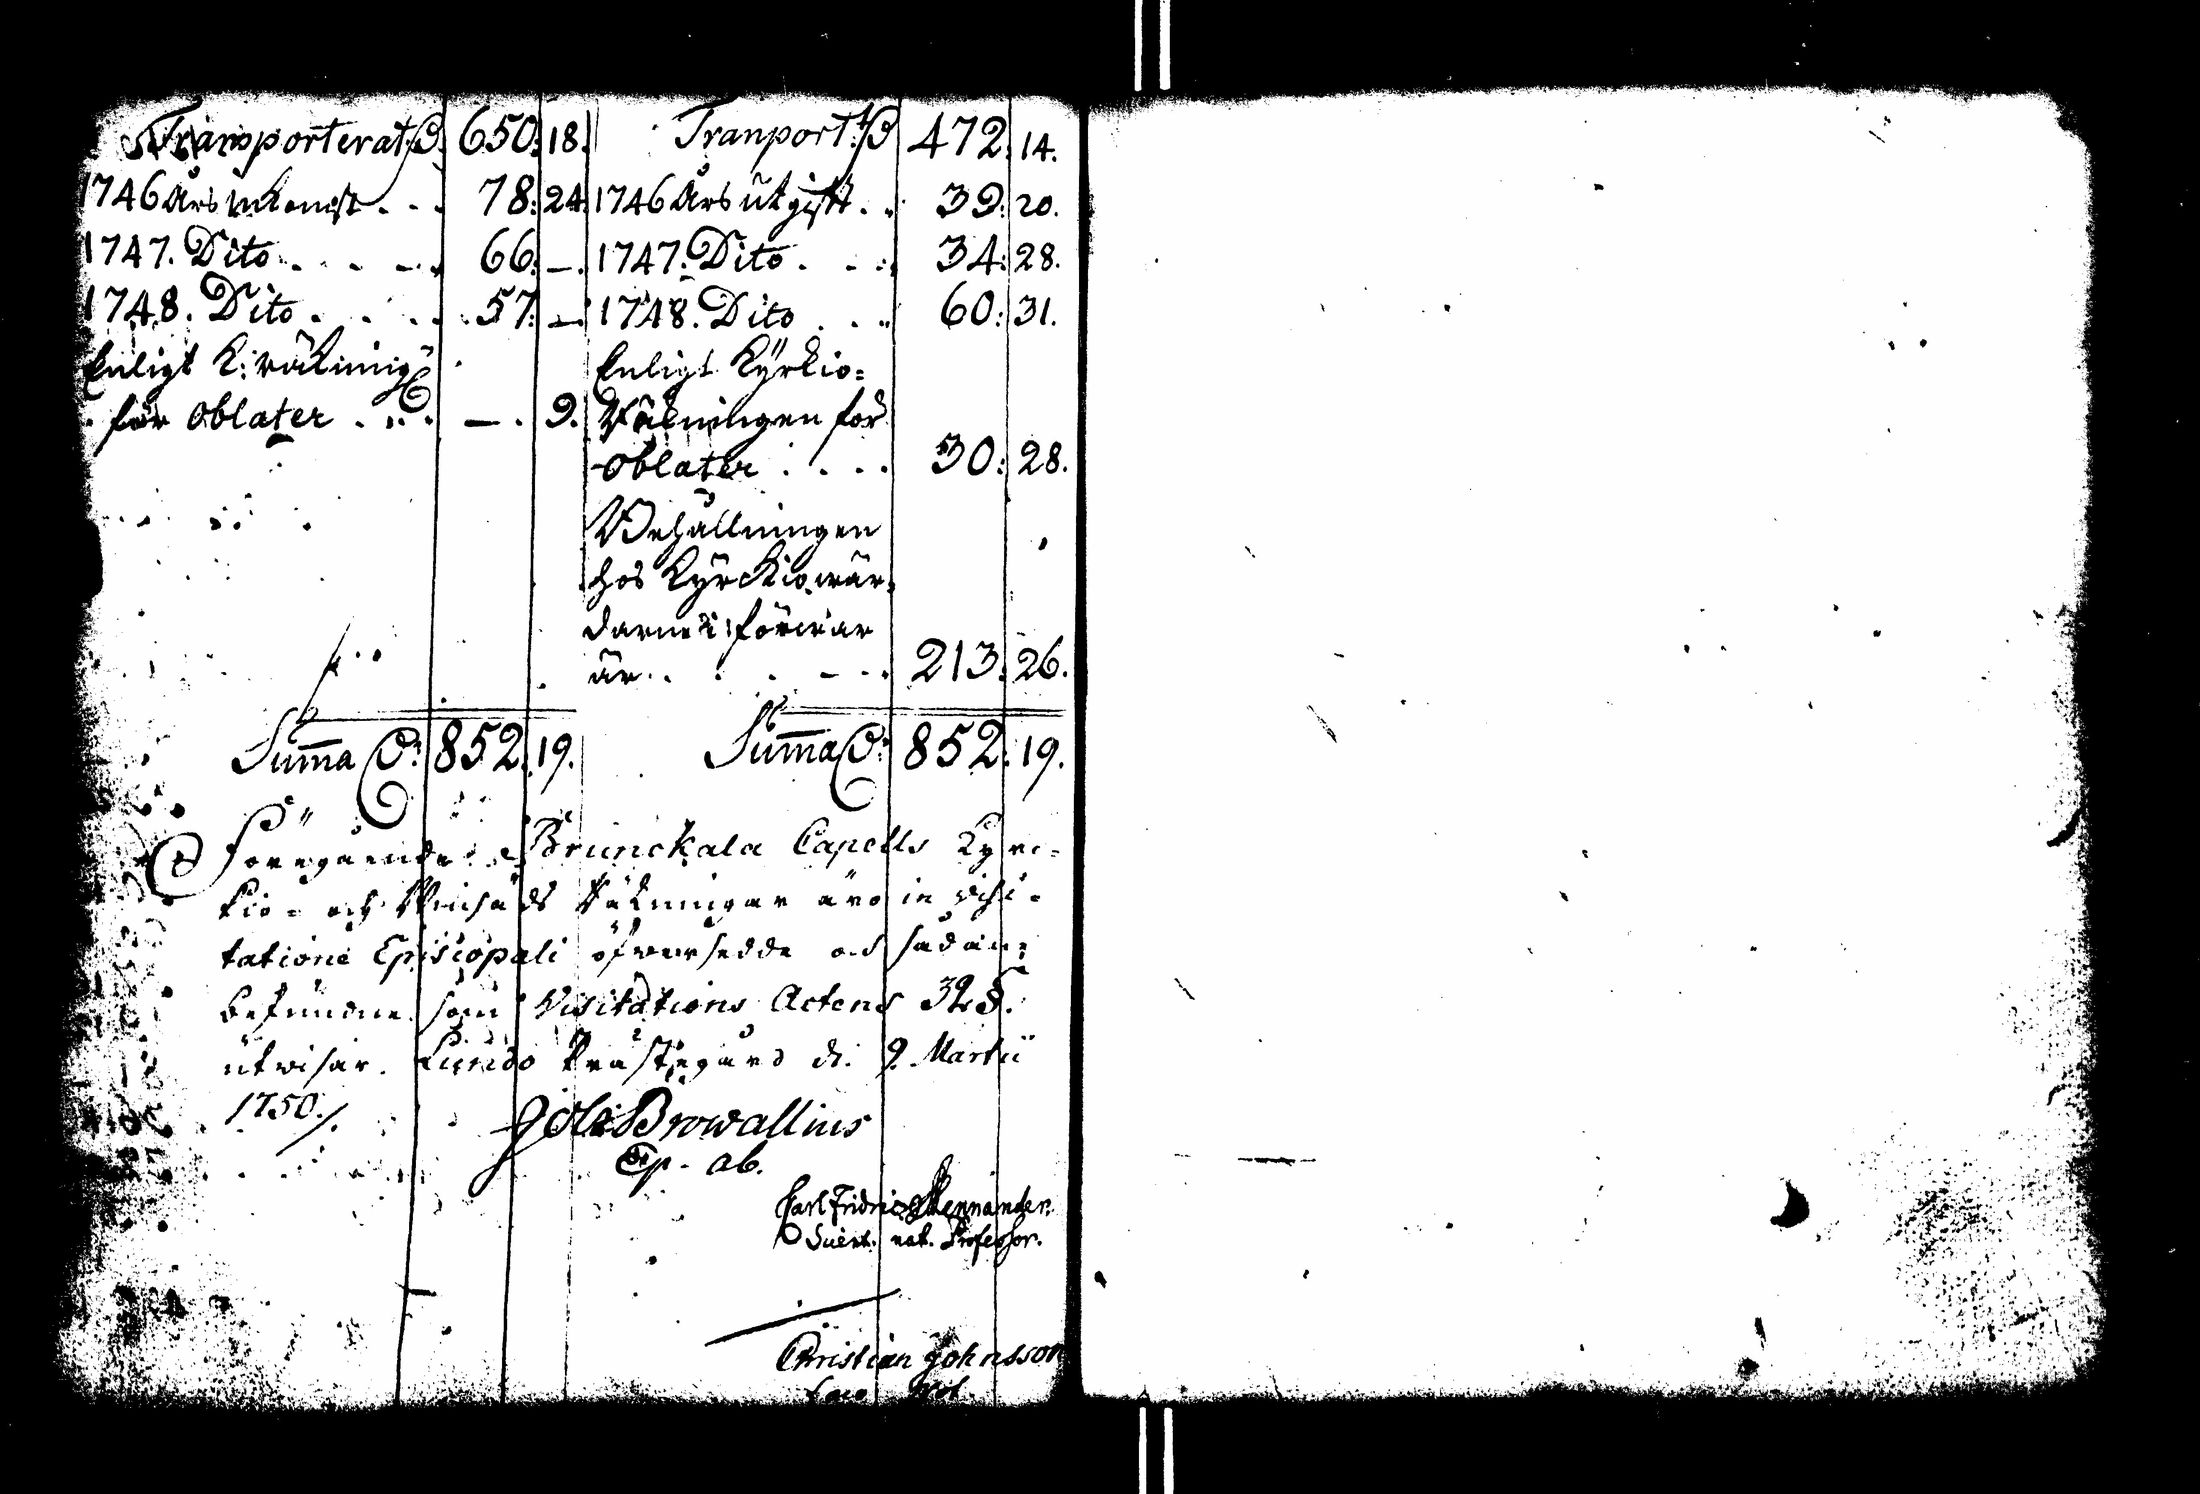 Transporterat 650: 18.
1746 Års inkomst . . . 78: 24.
1747. Dito . . . 66: —.
1748. Dito . . . 57: —.
Enligt K: räkning
för Oblater . . . — . 9.
Summa 852. 19.
Tranport: 472. 14.
1746 Års utgift . . 39: 20.
1747. Dito . . . 34: 28.
1748. Dito . . . 60: 31.
Enligt Kyrkio-
Räkningen för
Oblater . . . . 30: 28.
Behållningen
hos Kyrckiowär-
darne i förwar
är . . . . . 213: 26.
Summa 852: 19.
Föregående Brunckala Capells Kyrc-
kio- och Räkningar äro in Visi-
tatione Episcopali öfwersedde och sådane
befundne som Visitations Actens 32 §.
utwisar. Lundo Prästegård d. 9. Martii
1750.
Joh: Browallius
Ep. Ab.
Carl Fridric Mennander.
nat. Professor.
Christian Johnsson